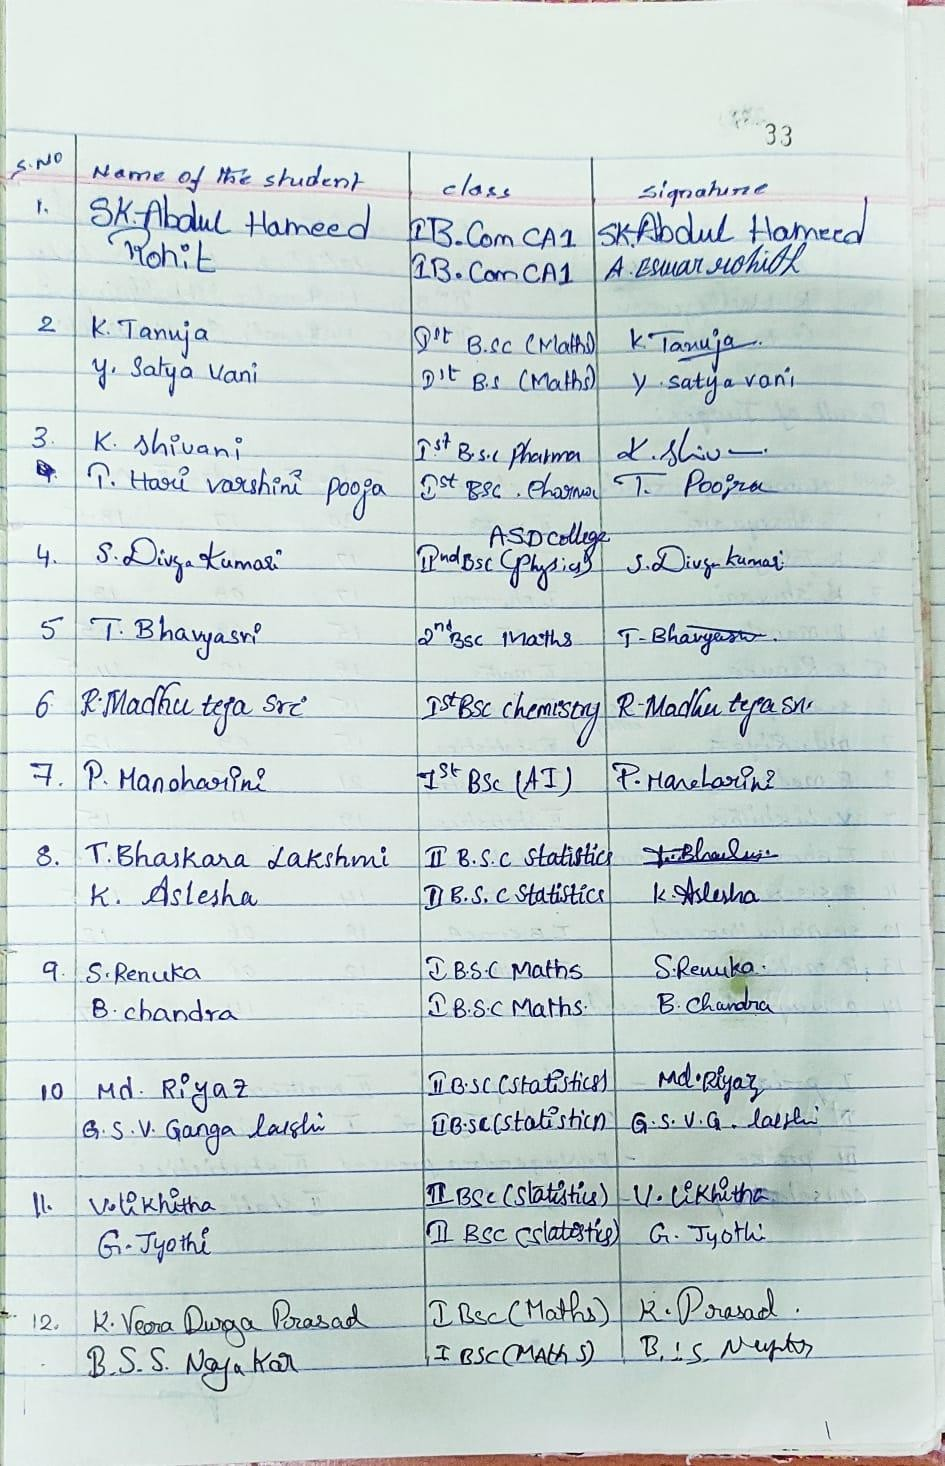 33
S.NO Name of the student class Signature
1. SK.Abdul Hameed IB.Com CA1 SK.Abdul Hameed
Rohit IB.Com CA1 A. Eswar rohith
2 K. Tanuja Ist B.sc (Maths) K. Tanuja.
y. Satya Vani Ist B.s (Maths) y. satya vani
3. K. Shivani Ist B.s.c pharma K. Shiv
T. Hari varshini pooja Ist BSC. Pharma T. Poojra
ASD college
4. S. Divya Kumari IInd BSC (physics) S. Divya kumari
5 T. Bhavyasri 2nd BSC Maths T. Bhavyasri.
6. R.Madhu teja Sri Ist BSC chemistry R.Madhu teja Sri
7. P. Manoharini Ist BSC (AI) P. Manoharini
8. T.Bhaskara Lakshmi II B.S.C Statistics
K. Aslesha II B.S.C Statistics K.Aslesha
9. S.Renuka I B.S.C Maths S.Renuka.
B. chandra I B.S.C Maths. B. Chandra
10 Md. Riyaz II B.SC (statistics) Md.Riyaz
G.S.V. Ganga laxshi II B.SC (statistics) G.S.V.G. laxshi
11. V.likhitha II BSC (Statistics) V. likhitha
G. Jyothi II BSC (Statistics) G. Jyothi
12. K. Veera Durga Prasad I BSC (Maths) K. Prasad.
B.S.S. Nayakar I BSC (MAthS) B.S.